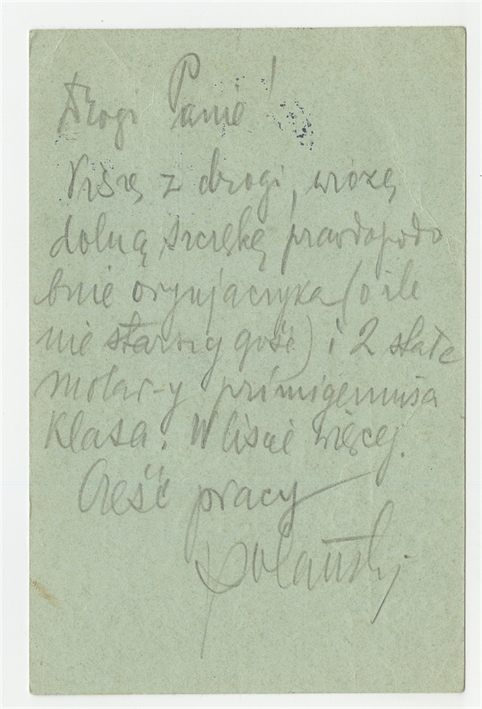 Drogi Panie!
Piszę z drogi, wiozę
dolną szczękę prawdopodo
bnie orynjacczyka (o ile
nie starszy gość) i 2 stałe
molar-y primigeniusa
Klasa! W liście więcej.
Cześć pracy